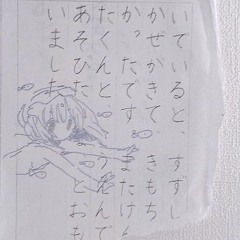 いでいると、すずし
かぜがきて、きもち
かったです。またけん
たくんと、うえんで
あそびた とおも
いました